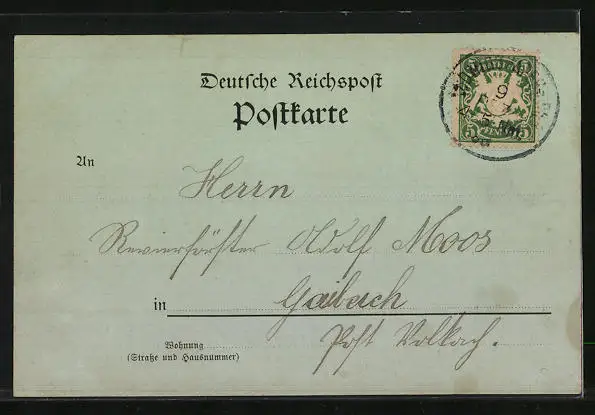 Deutsche Reichspost
Postkarte
An
Herrn
Revierförster Adolf Moos
in Gaibach
Wohnung
(Straße und Hausnummer)
Post Volkach.